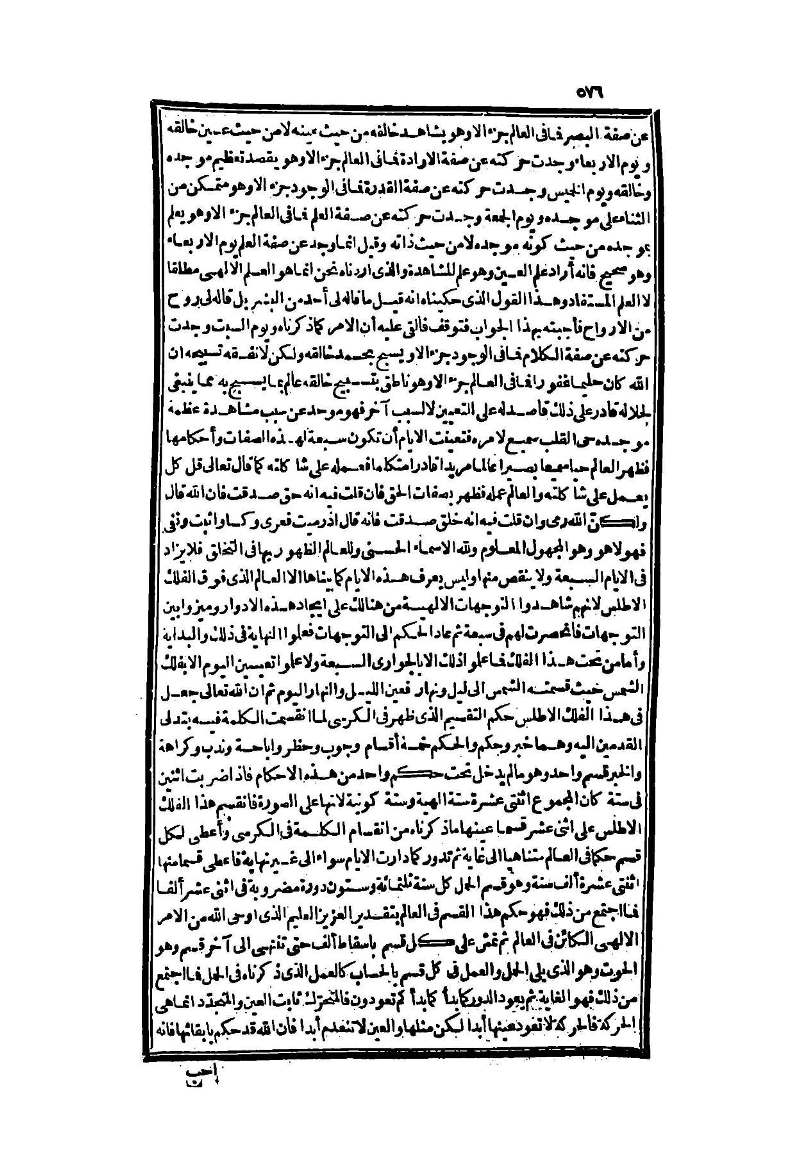 ٥٧٦
عن صفة البصر فما فى العالم جزء الا وهو يشاهد خالقه من حيث عينه لا من حيث عين خالقه
ويوم الاربعاء وجدت حركته عن صفة الارادة فما فى العالم جزء الا وهو يقصد تعظيم موجده
وخالقه ويوم الخيس وجدت حركته عن صفة القدرة فما فى الوجود جزء الا وهو متمكن من
الثناء على موجده ويوم الجمعة وجدت حركته عن صفة العلم فما فى العالم جزء الا وهو يعلم
بموجده من حيث كونه موجده لا من حيث ذاته وقيل انما وجد عن صفة العلم يوم الاربعاء
وهو صحيح فانه أراد علم العين وهو علم المشاهدة والذى اردناه نحن انما هو العلم الالهى مطلقا
لا العلم المستفاد وهذا القول الذى حكيناه انه قيل ما قاله لى أحد من البشر بل قاله لى روح
من الارواح فأجبته بهذا الجواب فتوقف فألقى عليه أن الامر كما ذكرناه ويوم السبت وجدت
حركته عن صفة الكلام فما فى الوجود جزء الا ويسبح بحمد خالقه ولكن لا نفقه تسبيحه ان
الله كان حليما غفورا فما فى العالم جزء الا وهو ناطق بتسبيح خالقه عالم بما يسبح به مما ينبغى
لجلاله قادر على ذلك قاصد له على التعيين لا لسبب آخر فهو موحد عن سبب مشاهدة عظمة
موجده حى القلب سميع لامره فتعينت الايام أن تكون سبعة لهذه الصفات وأحكامها
فظهر العالم حيا سميعا بصيرا عالما مريدا قادرا متكلما فعمله على شاكلته كما قال تعالى قل كل
يعمل على شاكلته والعالم عمله فظهر بصفات الحق فان قلت فيه انه حق صدقت فان الله قال
ولكن الله رمى وان قلت فيه انه خلق صدقت فانه قال اذ رميت فعرى وكسا واثبت ونفى
فهو لا هو وهو المجهول المعلوم ولله الاسماء الحسنى وللعالم الظهور بها فى التخلق فلا يزاد
فى الايام السبعة ولا ينقص منها وليس يعرف هذه الايام كما بيناها الا العالم الذى فوق الفلك
الاطلس لانهم شاهدوا التوجهات الالهية من هنالك على ايجاد هذه الادوار وميزوا بين
التوجهات فانحصرت لهم فى سبعة ثم عاد الحكم الى التوجهات فعلموا النهاية فى ذلك والبداية
وأما من تحت هذا الفلك فما علموا ذلك الا بالجوارى السبعة ولا علموا تعيين اليوم الا بفلك
الشمس حيث قسمته الشمس الى ليل ونهار فعين الليل والنهار اليوم ثم ان الله تعالى جعل
فى هذا الفلك الاطلس حكم التقسيم الذى ظهر فى الكرسى لما انقسمت الكلمة فيه بتدلى
القدمين اليه وهما خبر وحكم والحكم خمسة أقسام وجوب وحظر واباحة وندب وكراهة
والخبر قسم واحد وهو مالم يدخل تحت حكم واحد من هذه الاحكام فاذا ضربت اثنين
فى ستة كان المجموع اثنتى عشرة ستة الهية وستة كونية لانها على الصورة فانقسم هذا الفلك
الاطلس على اثنى عشر قسما عينها ما ذكرناه من انقسام الكلمة فى الكرسى وأعطى لكل
قسم حكما فى العالم متناهيا الى غاية ثم تدور كما دارت الايام سواء الى غير نهاية فاعطى قسما منها
اثنتى عشرة ألف سنة وهو قسم الحمل كل سنة ثلثمائة وستون دورة مضروبة فى اثنى عشر ألفا
فما اجتمع من ذلك فهو حكم هذا القسم فى العالم بتقدير العزيز العليم الذى اوحى الله من الامر
الالهى الكائن فى العالم ثم تمشى على كل قسم باسقاط ألف حتى تنتهى الى آخر قسم وهو
الحوت وهو الذى يلى الحمل والعمل فى كل قسم بالحساب كالعمل الذى ذكرناه فى الحمل فما اجتمع
من ذلك فهو الغاية ثم يعود الدور كما بدأ كما بدأكم تعودون فالمتحرك ثابت العين والمتجدد انما هى
الحركة فالحركة لا تعود عينها أبدا لكن مثلها والعين لا تنعدم أبدا فان الله قد حكم بابقائها فانه
أحب